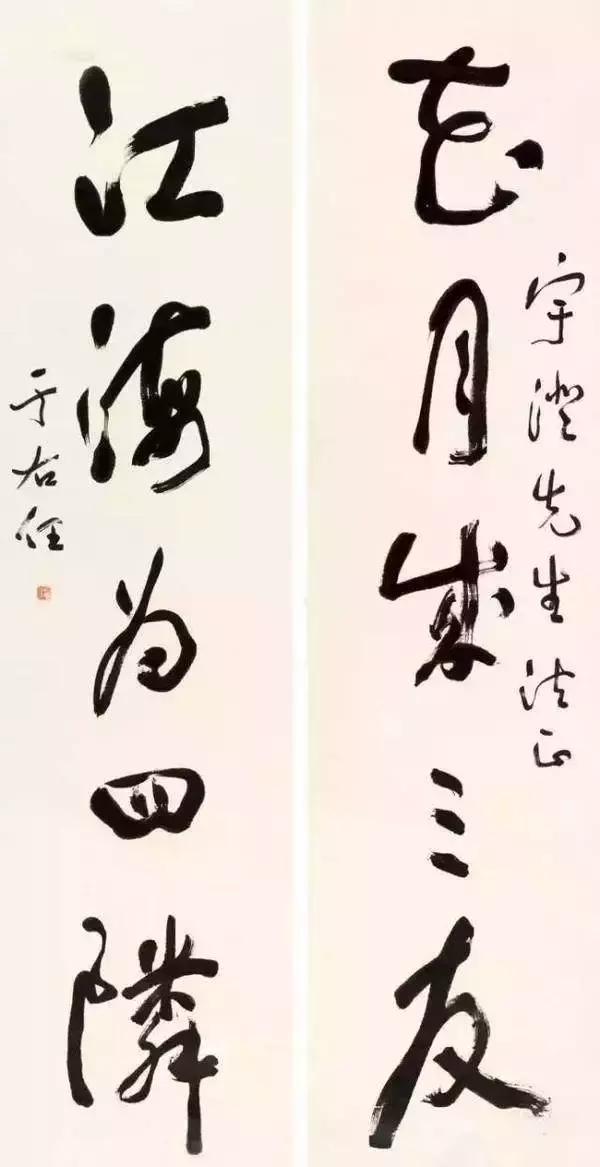 宇澄先生法正
花月三友
江海為四隣
于右任